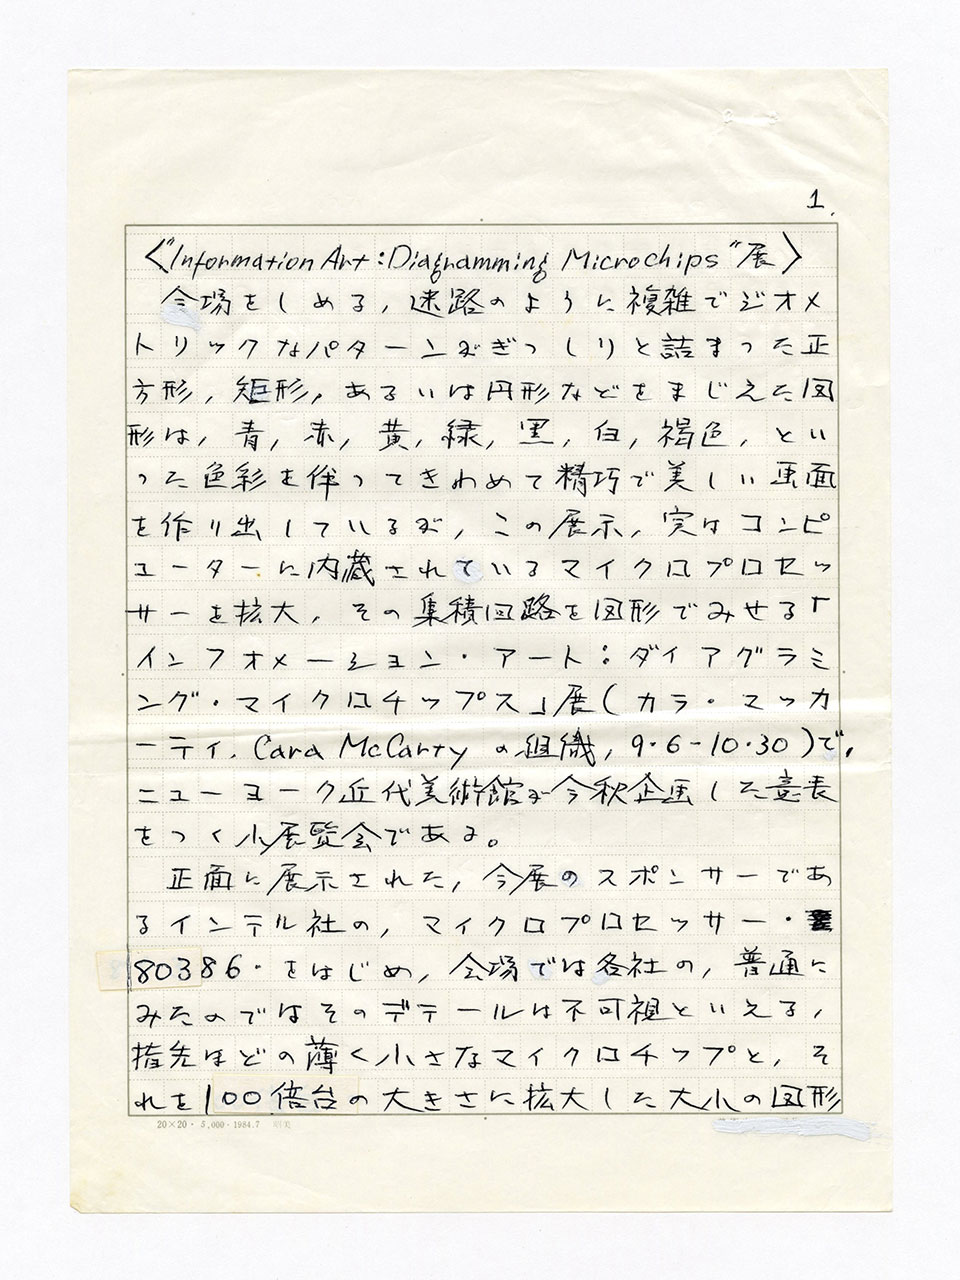 1.
〈"Information Art:Diagramming Microchips"展〉
会場をしめる,迷路のように複雑でジオメ
トリックなパターンがぎっしりと詰まった正
方形,矩形,あるいは円形などをまじえた図
形は,青,赤,黄,緑,黒,白,褐色,とい
った色彩を伴ってきわめて精巧で美しい画面
を作り出しているが,この展示,実はコンピ
ューターに内蔵されているマイクロプロセッ
サーを拡大,その集積回路を図形でみせる「
インフォメーション・アート:ダイアグラミ
ング・マイクロチップス」展(カラ・マッカ
ーティ,Cara McCartyの組織,9・6-10・30)で,
ニューヨーク近代美術館が今秋企画した意表
をつく小展覧会である。
正面に展示された,今展のスポンサーであ
るインテル社の,マイクロプロセッサー・
80386・をはじめ,会場では各社の,普通に
みたのではそのデテールは不可視といえる,
指先ほどの薄く小さなマイクロチップと,そ
れを100倍台の大きさに拡大した大小の図形
20×20・5,000・1984.7 昭美